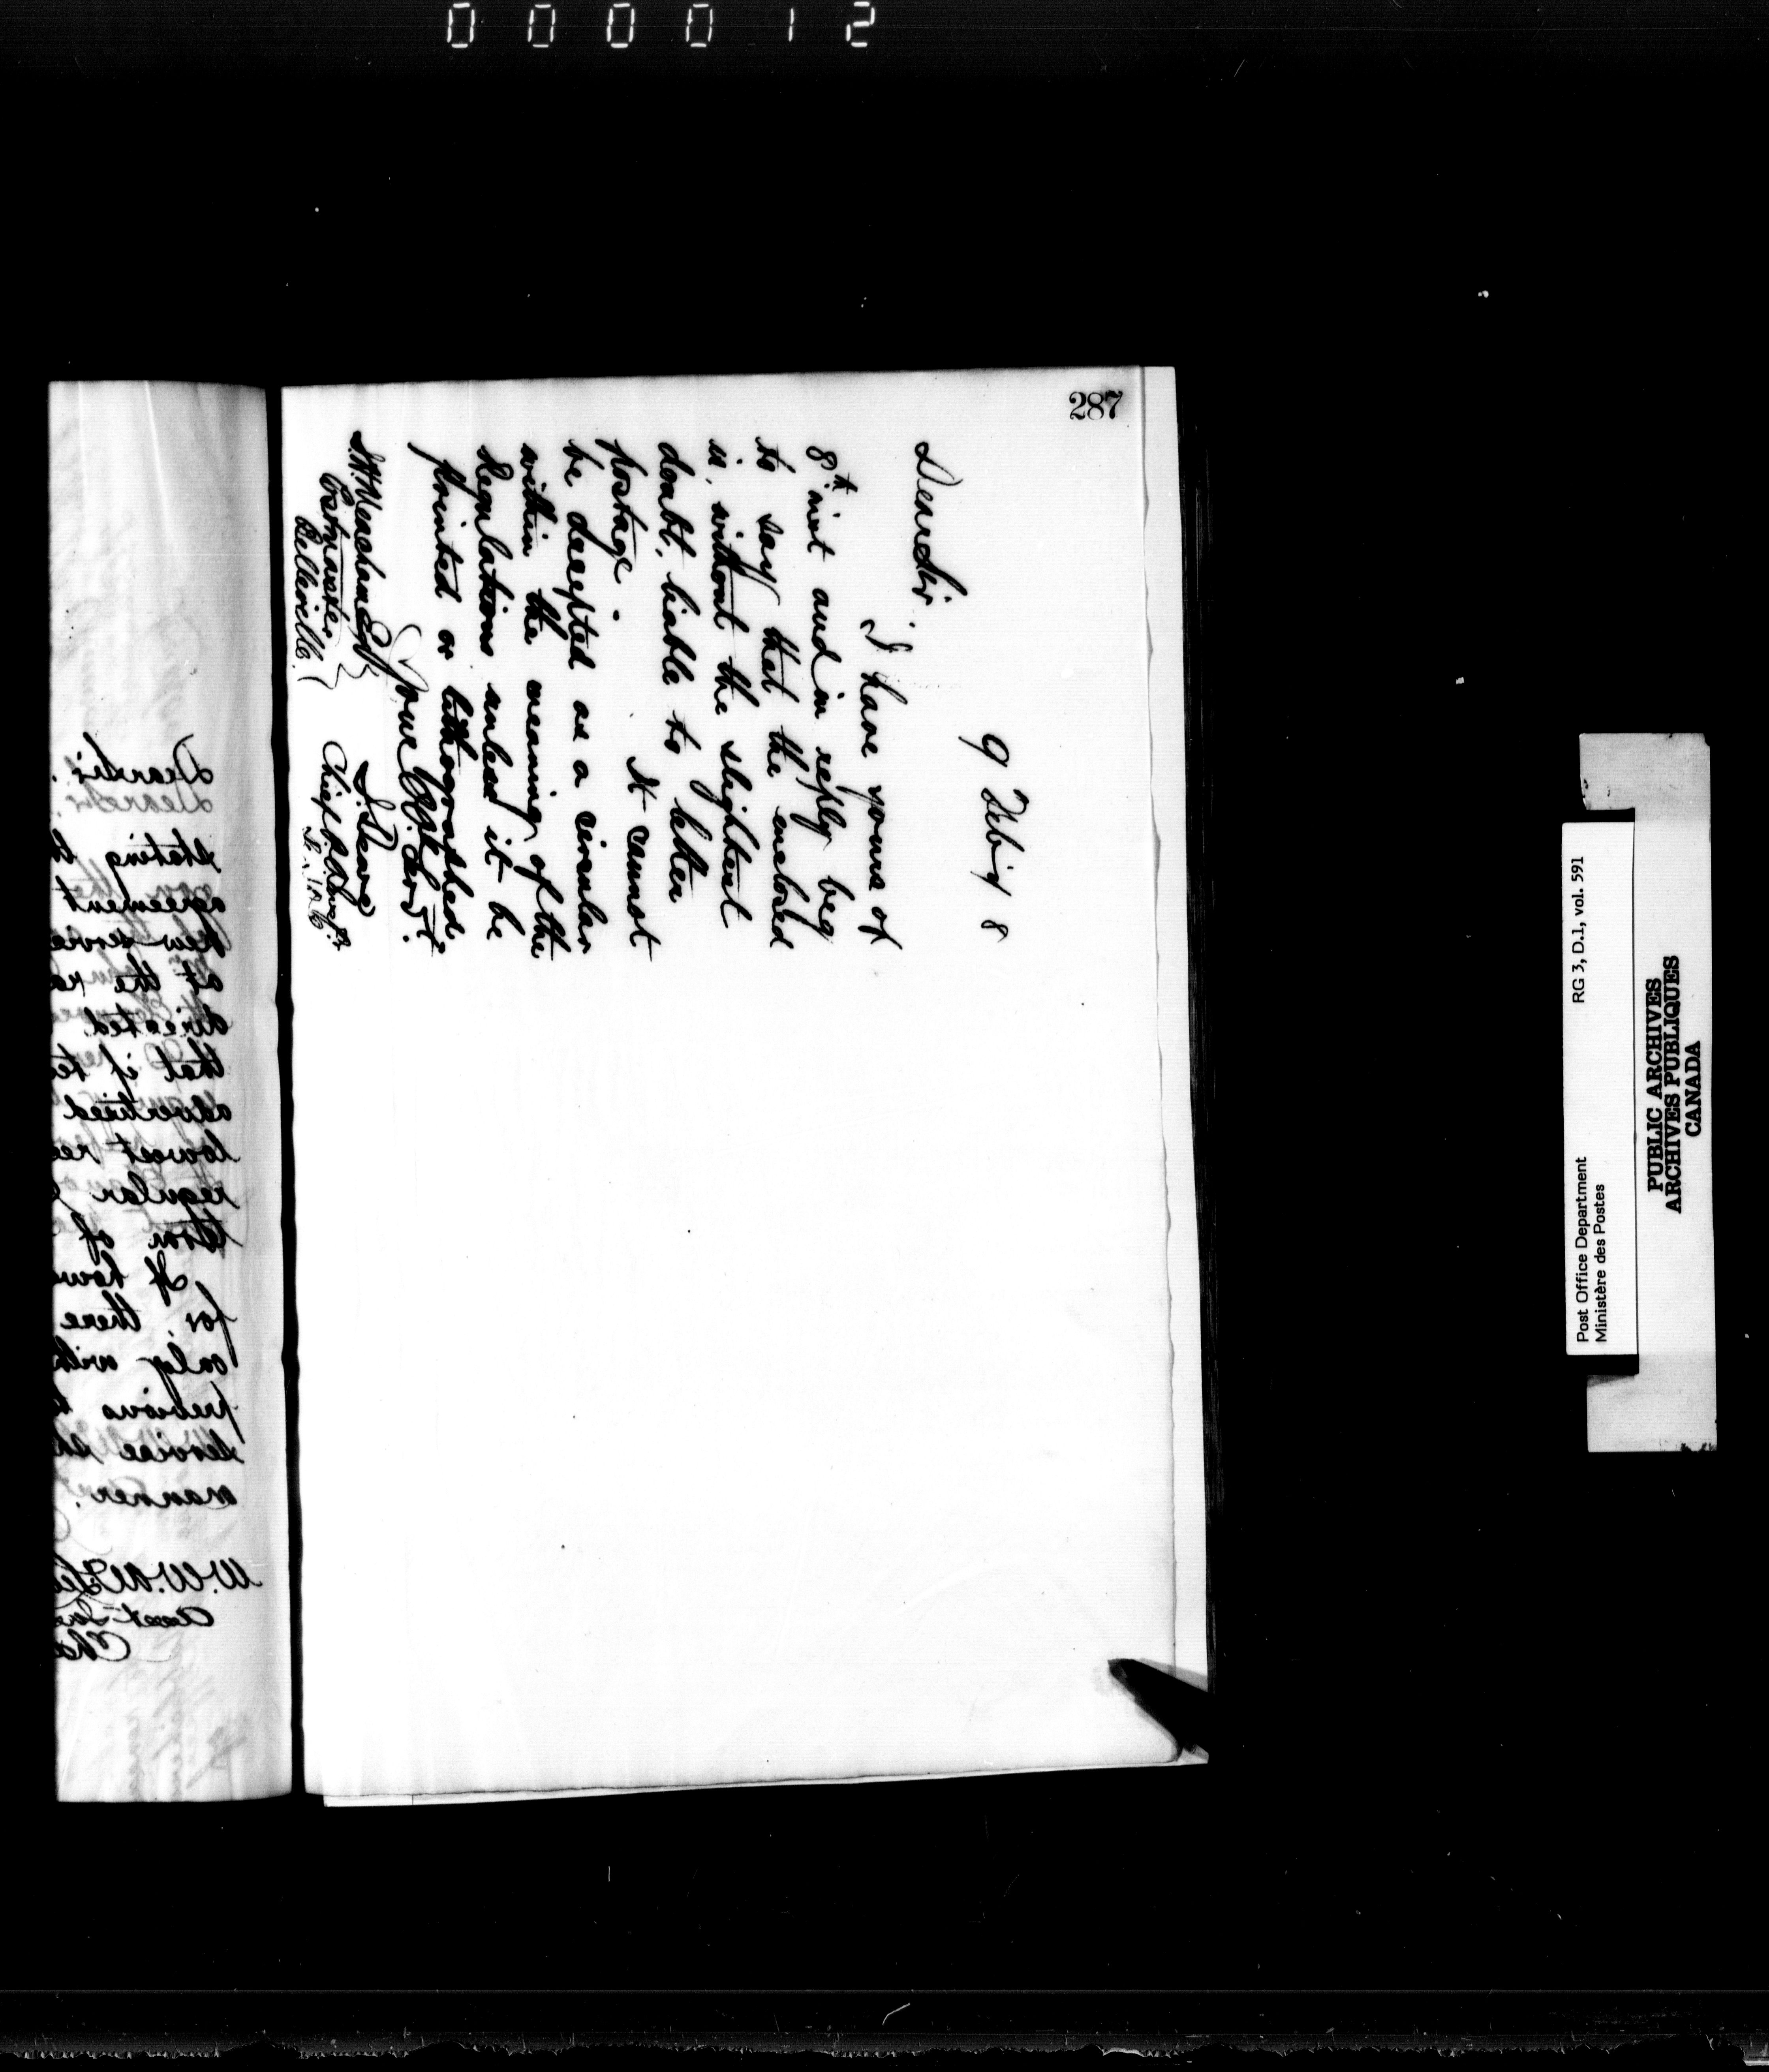 000012
287
9 Feb'y 8
Dear Sir.
I have yours of
8th inst and in reply beg
to say that the enclosed
is, without the slightest
doubt, liable to letter
postage. It cannot
be accepted as a circular
within the meaning of the
Regulations unless it be
printed or lithographed.
Your Ob. Serv't.
J.H. Meacham Esq
Postmaster
Belleville.
Chief P.O. Insp'r
Dear Sir.
stating
agreement
new service
at the
directed
that if
advertised
lowest
regular
term of
If
for, there
only with
previous
service
manner.
W.W.
Asst
Post Office Department RG 3, D.1, vol. 591
Ministère des Postes
PUBLIC ARCHIVES
ARCHIVES PUBLIQUES
CANADA